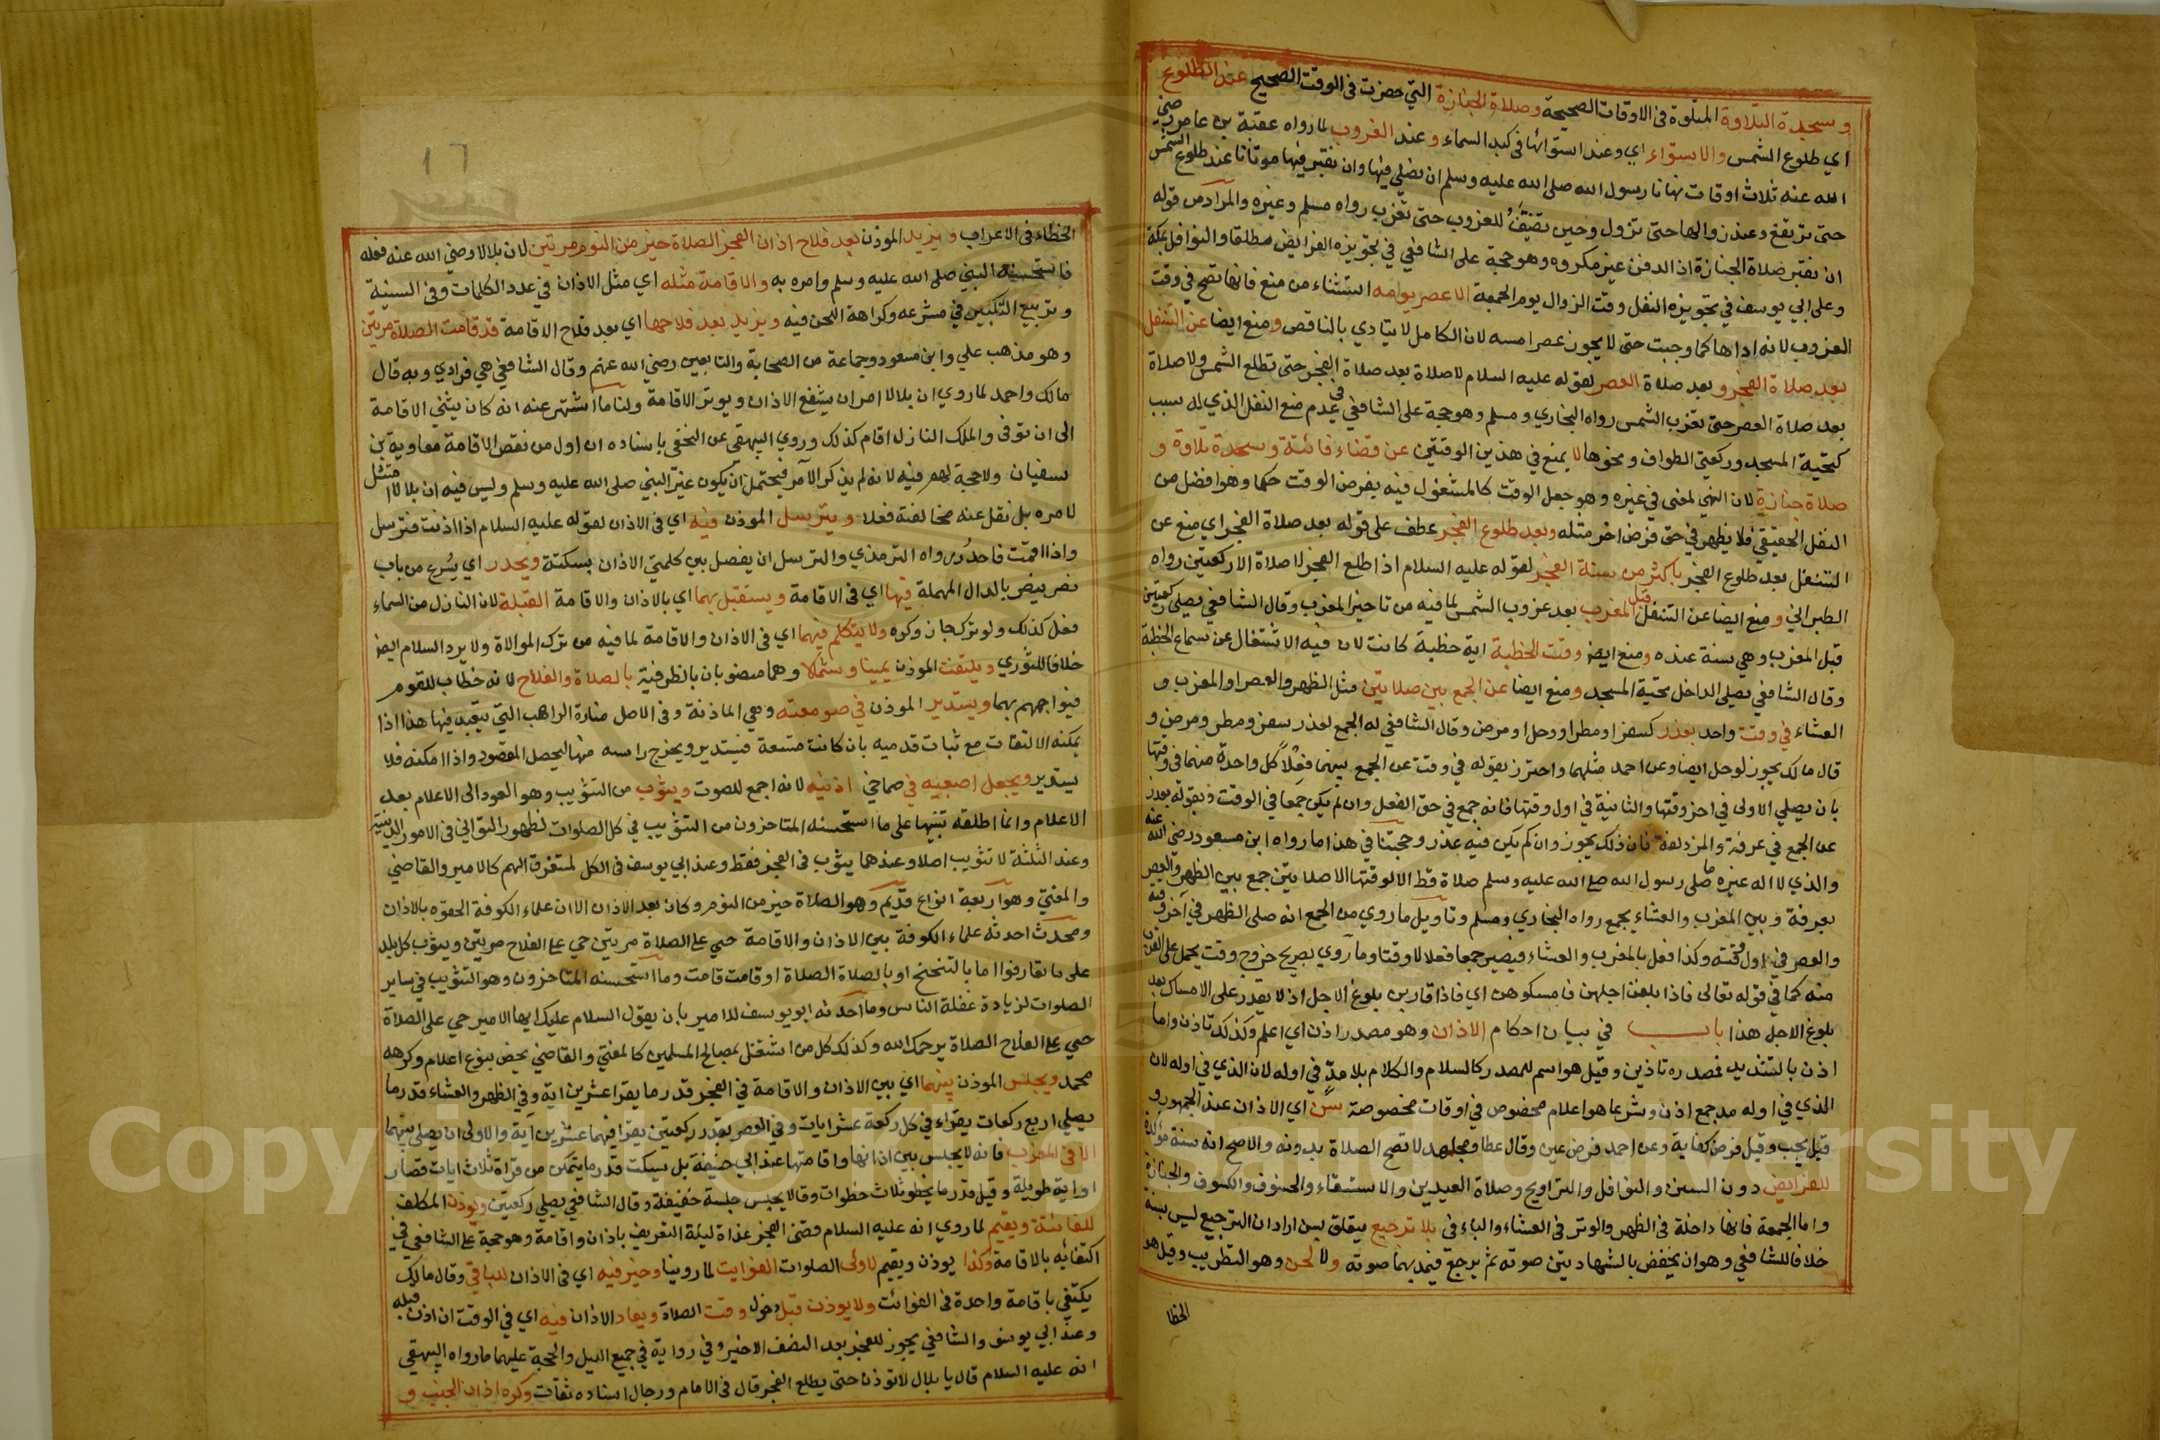 وسجدة التلاوة المتلوة في الاوقات الصحيحة وصلاة الجنازة التي حضرت في الوقت الصحيح عند الطلوع
اي طلوع الشمس والاستواء اي وعند استوائها في كبد السماء وعند الغروب لما رواه عقبة بن عامر رضي
الله عنه ثلاث اوقات نهانا رسول الله صلى الله عليه وسلم ان نصلي فيها وان نقبر فيها موتانا عند طلوع الشمس
حتى ترتفع وعند زوالها حتى تزول وحين تضيف للغروب حتى تغرب رواه مسلم وغيره والمراد من قوله
ان نقبر صلاة الجنازة اذ الدفن غير مكروه وهو حجة على الشافعي في تجويزه الفرايض مطلقا والنوافل بمكة
وعلى ابي يوسف في تجويزه النفل وقت الزوال يوم الجمعة الا عصر يومه استثناء من منع فانها تصح في وقت
الغروب لانه اداها كما وجبت حتى لا يجوز عصر امسه لان الكامل لا يتادي بالناقص ومنع ايضا عن التنفل
بعد صلاة الفجر وبعد صلاة العصر لقوله عليه السلام لا صلاة بعد صلاة الفجر حتى تطلع الشمس ولا صلاة
بعد صلاة العصر حتى تغرب الشمس رواه البخاري ومسلم وهو حجة على الشافعي في عدم منع النفل الذي له سبب
كتحية المسجد وركعتي الطواف ونحوها لا يمنع في هذين الوقتين عن قضاء فائتة وسجدة تلاوة و
صلاة جنازة لان النهي لمعنى في غيره وهو جعل الوقت كالمشغول فيه بفرض الوقت حكما وهو افضل من
النفل الحقيقي فلا يظهر في حق فرض اخر مثله وبعد طلوع الفجر عطف على قوله بعد صلاة الفجر اي منع عن
التنفل بعد طلوع الفجر باكثر من سنة الفجر لقوله عليه السلام اذا طلع الفجر لا صلاة الا ركعتين رواه
الطبراني ومنع ايضا عن التنفل قبل المغرب بعد غروب الشمس لما فيه من تاخير المغرب وقال الشافعي يصلي ركعتين
قبل المغرب وهي سنة عنده ومنع ايضا وقت الخطبة اية خطبة كانت لان فيه الاشتغال عن سماع الخطبة
وقال الشافعي يصلي الداخل تحية المسجد ومنع ايضا عن الجمع بين صلاتين مثل الظهر والعصر او المغرب و
العشاء في وقت واحد بعذر كسفر او مطر او وحل او مرض وقال الشافعي له الجمع لعذر سفر ومطر ومرض و
قال مالك يجوز لوحل ايضا وعن احمد مثلهما واحترز بقوله في وقت عن الجمع بينهما فعلا كل واحدة منهما في وقتها
بان يصلي الاولى في اخر وقتها والثانية في اول وقتها فانه جمع في حق الفعل وان لم يكن جمعا في الوقت وبقوله بعذر
عن الجمع في عرفة والمزدلفة فان ذلك يجوز وان لم يكن فيه عذر وحجتنا في هذا ما رواه ابن مسعود رضي الله عنه
والذي لا اله غيره ما صلى رسول الله صلى الله عليه وسلم صلاة قط الا لوقتها الا صلاتين جمع بين الظهر والعصر
بعرفة وبين المغرب والعشاء بجمع رواه البخاري ومسلم وتاويل ما روي من الجمع انه صلى الظهر في آخر وقته
والعصر في اول وقته وكذا فعل بالمغرب والعشاء فيصير جمعا فعلا لا وقتا وما روي بصريح خروج وقت يحمل على القرب
منه كما في قوله تعالى فاذا بلغن اجلهن فامسكوهن اي فاذا قاربن بلوغ الاجل اذ لا يقدر على الامساك بعد
بلوغ الاجل هذا باب في بيان احكام الاذان وهو مصدر اذن اي اعلم وكذلك تاذن واما
اذن بالتشديد فمصدره تاذين وقيل هو اسم للمصدر كالسلام والكلام بلا مد في اوله لان الذي في اوله لان
الذي في اوله مد جمع اذن وشرعا هو اعلام مخصوص في اوقات مخصوصة سن اي الاذان عند الجمهور و
قيل يجب وقيل فرض كفاية وعن احمد فرض عين وقال عطا ومجاهد لا تصح الصلاة بدونه والاصح انه سنة مؤكدة
للفرايض دون السنن والنوافل والتراويح وصلاة العيدين والاستسقاء والخسوف والكسوف والجنازة
واما الجمعة فانها داخلة في الظهر والوتر في العشاء والباء في بلا ترجيع يتعلق بسن اراد ان الترجيع ليس بسنة
خلافا للشافعي وهو ان يخفض بالشهادتين صوته ثم يرجع فيمد بهما صوته ولا لحن وهو التطريب وقيل هو
الخطا
١٦
الخطاء في الاعراب ويزيد الموذن بعد فلاح اذان الفجر الصلاة خير من النوم مرتين لان بلالا رضي الله عنه فعله
فاستحسنه النبي صلى الله عليه وسلم وامره به والاقامة مثله اي مثل الاذان في عدد الكلمات وفي السنية
وتربيع التكبير في مشرعه وكراهة اللحن فيه ويزيد بعد فلاحها اي بعد فلاح الاقامة قد قامت الصلاة مرتين
وهو مذهب علي وابن مسعود وجماعة من الصحابة والتابعين رضي الله عنهم وقال الشافعي هي فرادي وبه قال
مالك واحمد لما روي ان بلالا امر ان يشفع الاذان ويوتر الاقامة ولنا ما اشتهر عنه انه كان يثني الاقامة
الى ان توفي والملك النازل اقام كذلك وروي البيهقي عن النخعي باسناده ان اول من نقص الاقامة معاوية بن
سفيان ولا حجة لهم فيه لانه لم يذكر الآمر فيحتمل ان يكون غير النبي صلى الله عليه وسلم وليس فيه ان بلالا امتثل
لامره بل نقل عنه مخالفته فعلا ويترسل الموذن فيه اي في الاذان لقوله عليه السلام اذا اذنت فترسل
واذا اقمت فاحدر رواه الترمذي والترسل ان يفصل بين كلمتي الاذان بسكتة ويحدر اي يسرع من باب
نصر ينصر بالدال المهملة فيها اي في الاقامة ويستقبل بهما اي بالاذان والاقامة القبلة لان النازل من السماء
فعل كذلك ولو ترك جاز وكره ولا يتكلم فيهما اي في الاذان والاقامة لما فيه من ترك الموالاة ولا يرد السلام ايضا
خلافا للثوري ويلتفت الموذن يمينا وشمالا وهما منصوبان بالظرفية بالصلاة والفلاح لانه خطاب للقوم
فيواجههم بهما ويستدير الموذن في صومعته وهي الماذنة وفي الاصل منارة الراهب التي يتعبد فيها هذا اذا
يمكنه الالتفات مع ثبات قدميه بان كانت متسعة فيستدير ويخرج راسه منها ليحصل المقصود واذا امكنه فلا
يستدير ويجعل اصبعيه في صماخي اذنيه لانه اجمع للصوت ويثوب من التثويب وهو العود الى الاعلام بعد
الاعلام وانما اطلقه تنبيها على ما استحسنه المتاخرون من التثويب في كل الصلوات لظهور التواني في الامور الدينية
وعند الثلثة لا تثويب اصلا وعندهما يثوب في الفجر فقط وعند ابي يوسف في الكل لمتفرق الهم كالامير والقاضي
والمفتي وهو اربعة انواع قديم وهو الصلاة خير من النوم وكان بعد الاذان الا ان علماء الكوفة الحقوه بالاذان
ومحدث احدثه علماء الكوفة بين الاذان والاقامة حي على الصلاة مرتين حي على الفلاح مرتين ويثوب كل بلد
على ما تعارفوا اما بالتنحنح او بالصلاة الصلاة او قامت قامت وما استحسنه المتاخرون وهو التثويب في ساير
الصلوات لزيادة غفلة الناس وما احدثه ابو يوسف للامير بان يقول السلام عليك ايها الامير حي على الصلاة
حي على الفلاح الصلاة يرحمك الله وكذلك كل من اشتغل بمصالح المسلمين كالمفتي والقاضي يخص بنوع اعلام وكرهه
محمد ويجلس الموذن بينهما اي بين الاذان والاقامة في الفجر قدر ما يقرا عشرين اية وفي الظهر والعشاء قدر ما
يصلي اربع ركعات يقراء في كل ركعة عشر ايات وفي العصر بقدر ركعتين يقرا فيهما عشرين آية والاولى ان يصلي بينهما
الا في المغرب فانه لا يجلس بين اذانها واقامتها عند ابي حنيفة بل يسكت قدر ما يتمكن من قراة ثلاث ايات قصار
او اية طويلة وقيل قدر ما يخطو ثلاث خطوات وقالا يجلس جلسة خفيفة وقال الشافعي يصلي ركعتين ويوذن المكلف
للفائتة ويقيم لما روي انه عليه السلام قضى الفجر غداة ليلة التعريف باذان واقامة وهو حجة على الشافعي في
اكتفائه بالاقامة وكذا يوذن ويقيم لاولى الصلوات الفوايت لما روينا وخير فيه اي في الاذان للباقي وقال مالك
يكتفي باقامة واحدة في الفوائت ولا يوذن قبل دخول وقت الصلاة ويعاد الاذان فيه اي في الوقت ان اذن قبله
وعند ابي يوسف والشافعي يجوز للفجر بعد النصف الاخير وفي رواية في جميع الليل والحجة عليهما ما رواه البيهقي
انه عليه السلام قال يا بلال لا توذن حتى يطلع الفجر قال في الامام ورجال اسناده ثقات وكره اذان الجنب و
Copyright © King Saud University